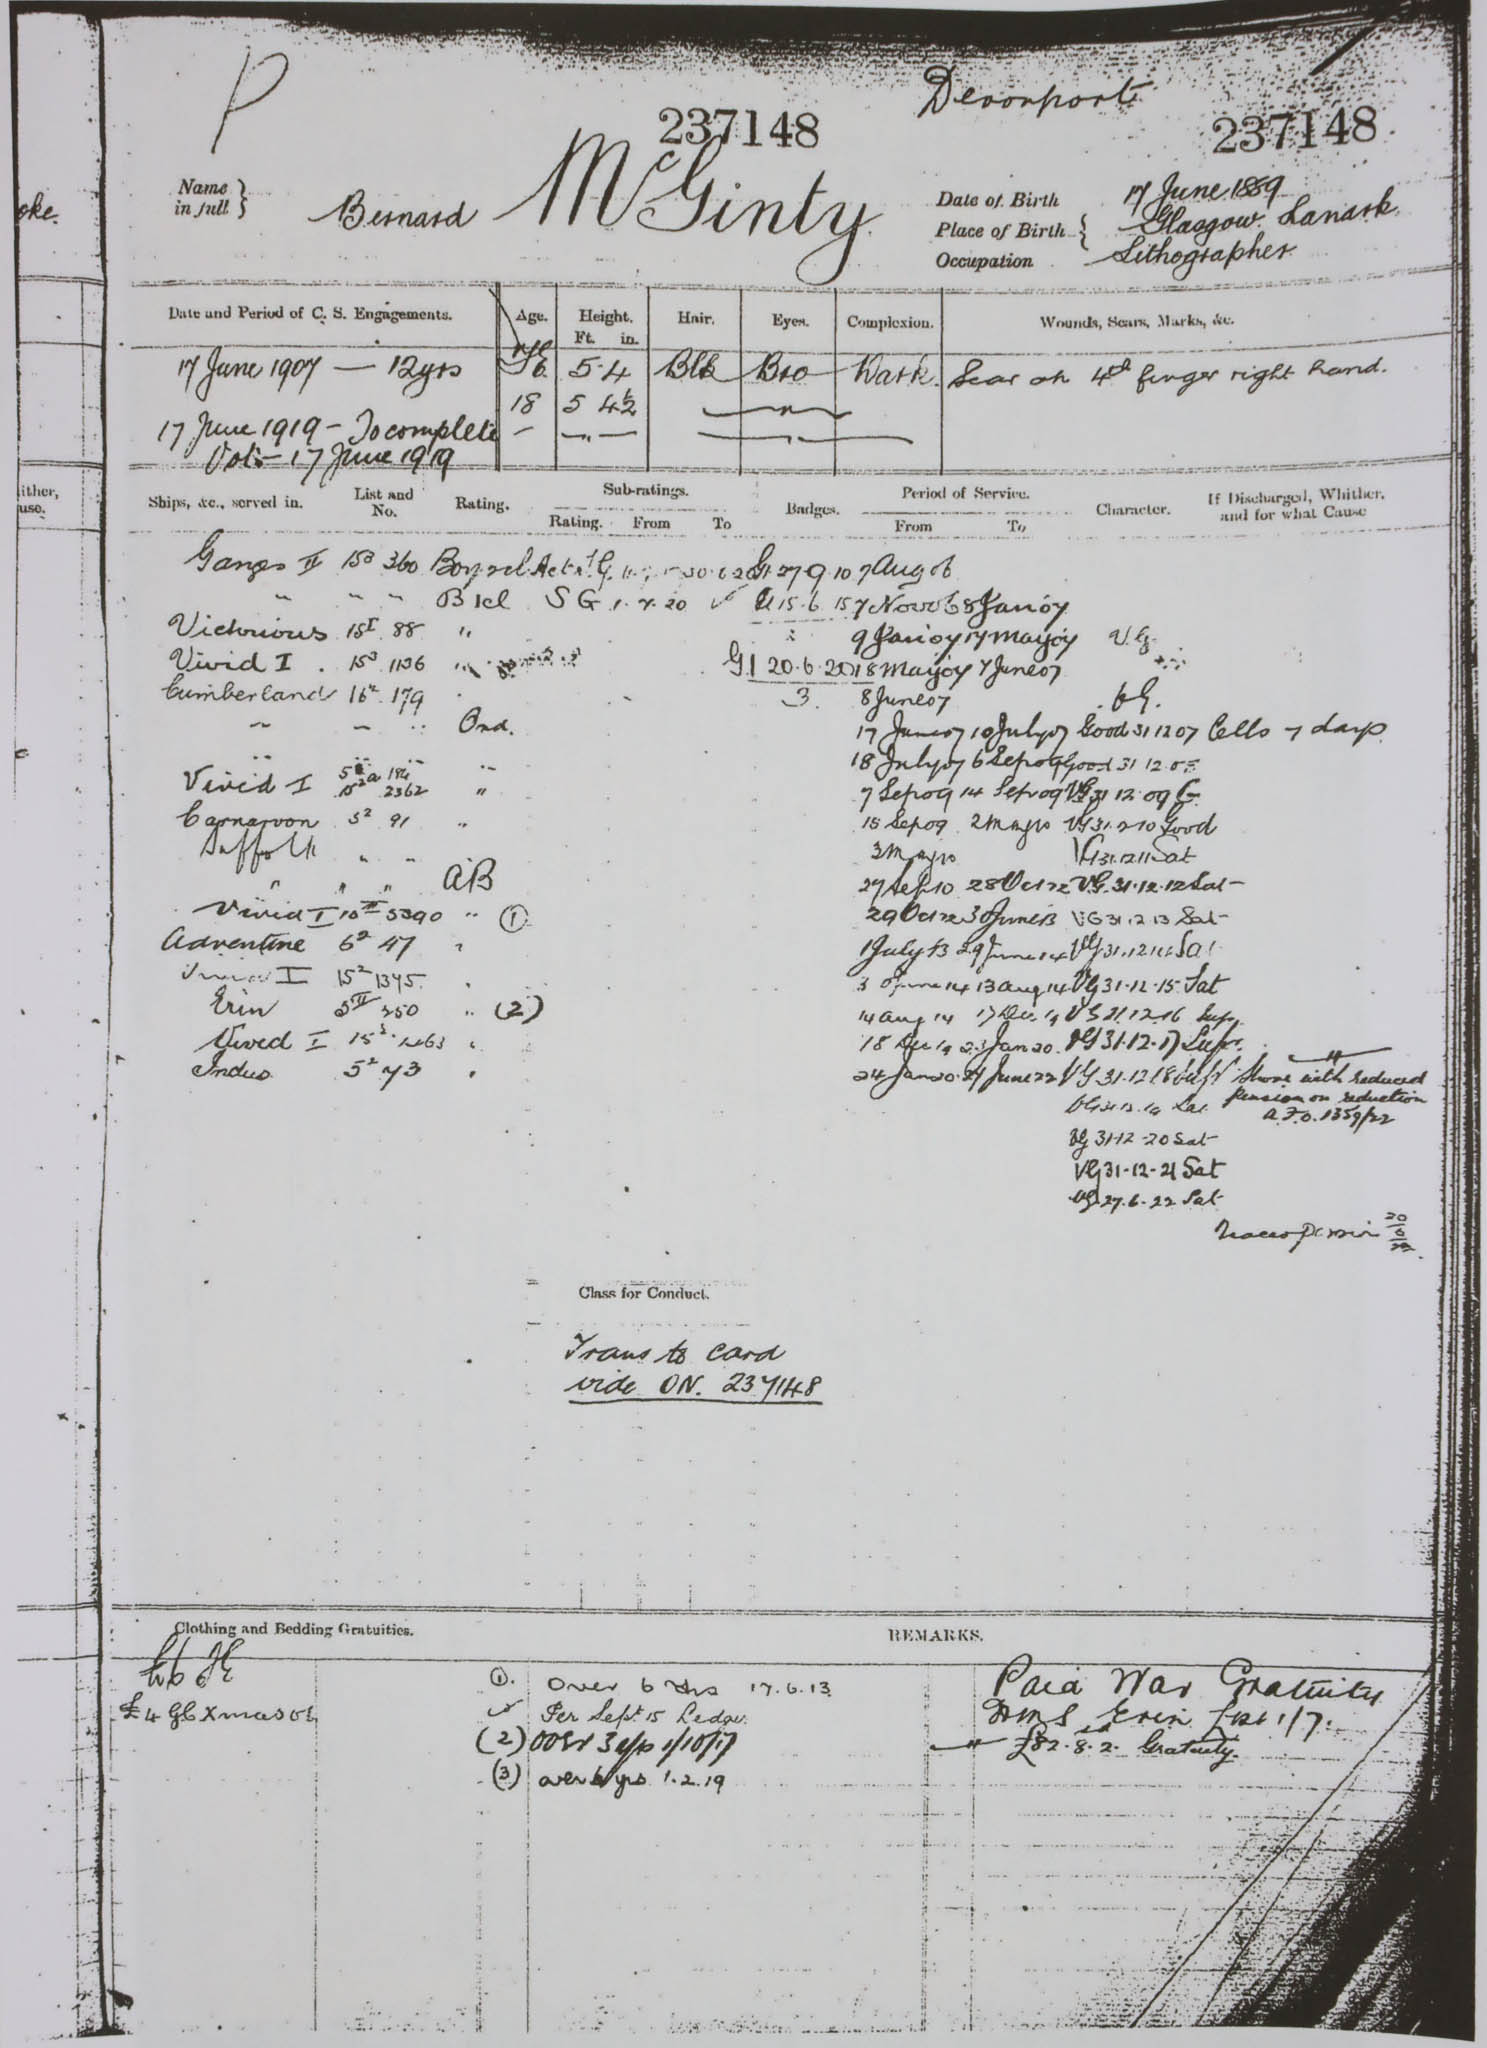 P
Devonport
237148
237148
Name in full } Bernard McGinty
Date of Birth 17 June 1889
Place of Birth { Glasgow. Lanark
Occupation Lithographer
oke.
Date and Period of C. S. Engagements. Age. Height. Ft. in. Hair. Eyes. Complexion. Wounds, Scars, Marks, &c.
17 June 1907 — 12yrs 5.4 Blk Bro Dark. Scar on 4th finger right hand.
18 5 4½ — " —
17 June 1919 - To complete - — " — — " —
Vol:- 17 June 1919
ither,
use.
Ships, &c., served in. List and No. Rating. Sub-ratings. Rating. From To Badges. Period of Service. From To Character. If Discharged, Whither, and for what Cause
Ganges II 15³ 360 Boy 7 Aug 06
" " " B 1cl S G 1.7.20 15.6.15 7 Nov 06 8 Jan 07
Victorious 15I 88 " 9 Jan 07 17 May 07 V.G.
Vivid I. 15³ 1136 " G1 20.6.20 18 May 07 7 June 07
Cumberland 16² 179 3. 8 June 07 VG.
" " " Ord. 17 June 07 10 July 07 Good 31 12 07 Cells 7 days
" " " " 18 July 07 6 Sep 09 Good 31 12 08
Vivid I 15²a 2362 " 7 Sep 09 14 Sep 09 VG 31 12 09 G
Carnarvon 5² 91 " 15 Sep 09 2 May 10 VG 31.12 10 Good
Suffolk " " 3 May 10 VG 31.12.11 Sat
" " " AB 27 Sep 10 28 Oct 12 VG. 31.12.12 Sat
Vivid I 15II 5390 " (1) 29 Oct 12 30 June 13 VG 31.12.13 Sat
Adventure 6² 47 " 1 July 13 29 June 14 VG 31.12.14 Sat
Vivid I 15² 1345. 30 June 14 13 Aug 14 VG 31-12-15 Sat
Erin 5II 250 " (2) 14 Aug 14 17 Dec 19 VG 31.12.16 Supr.
Vivid I 15² " 18 Dec 19 23 Jan 20 VG 31-12-17 Supr.
Indus 5² 73 " 24 Jan 20 27 June 22 VG 31.12.18 Supr Shore with reduced
pension on reduction
A.F.O. 1359/22
VG 31.12.19 Sat
VG 31-12-20 Sat
VG 31-12-21 Sat
VG 27.6.22 Sat
Class for Conduct.
Trans to card
vide ON. 237148
Clothing and Bedding Gratuities.
REMARKS.
£4 Xmas
(1). Over 6 yrs 17.6.13
Per Sept 15 Ledger
(2) 1/10/17
(3) over 6 yrs 1.2.19
Paid War Gratuity
HMS Erin 1/7.
" £82.8.2. Gratuity.